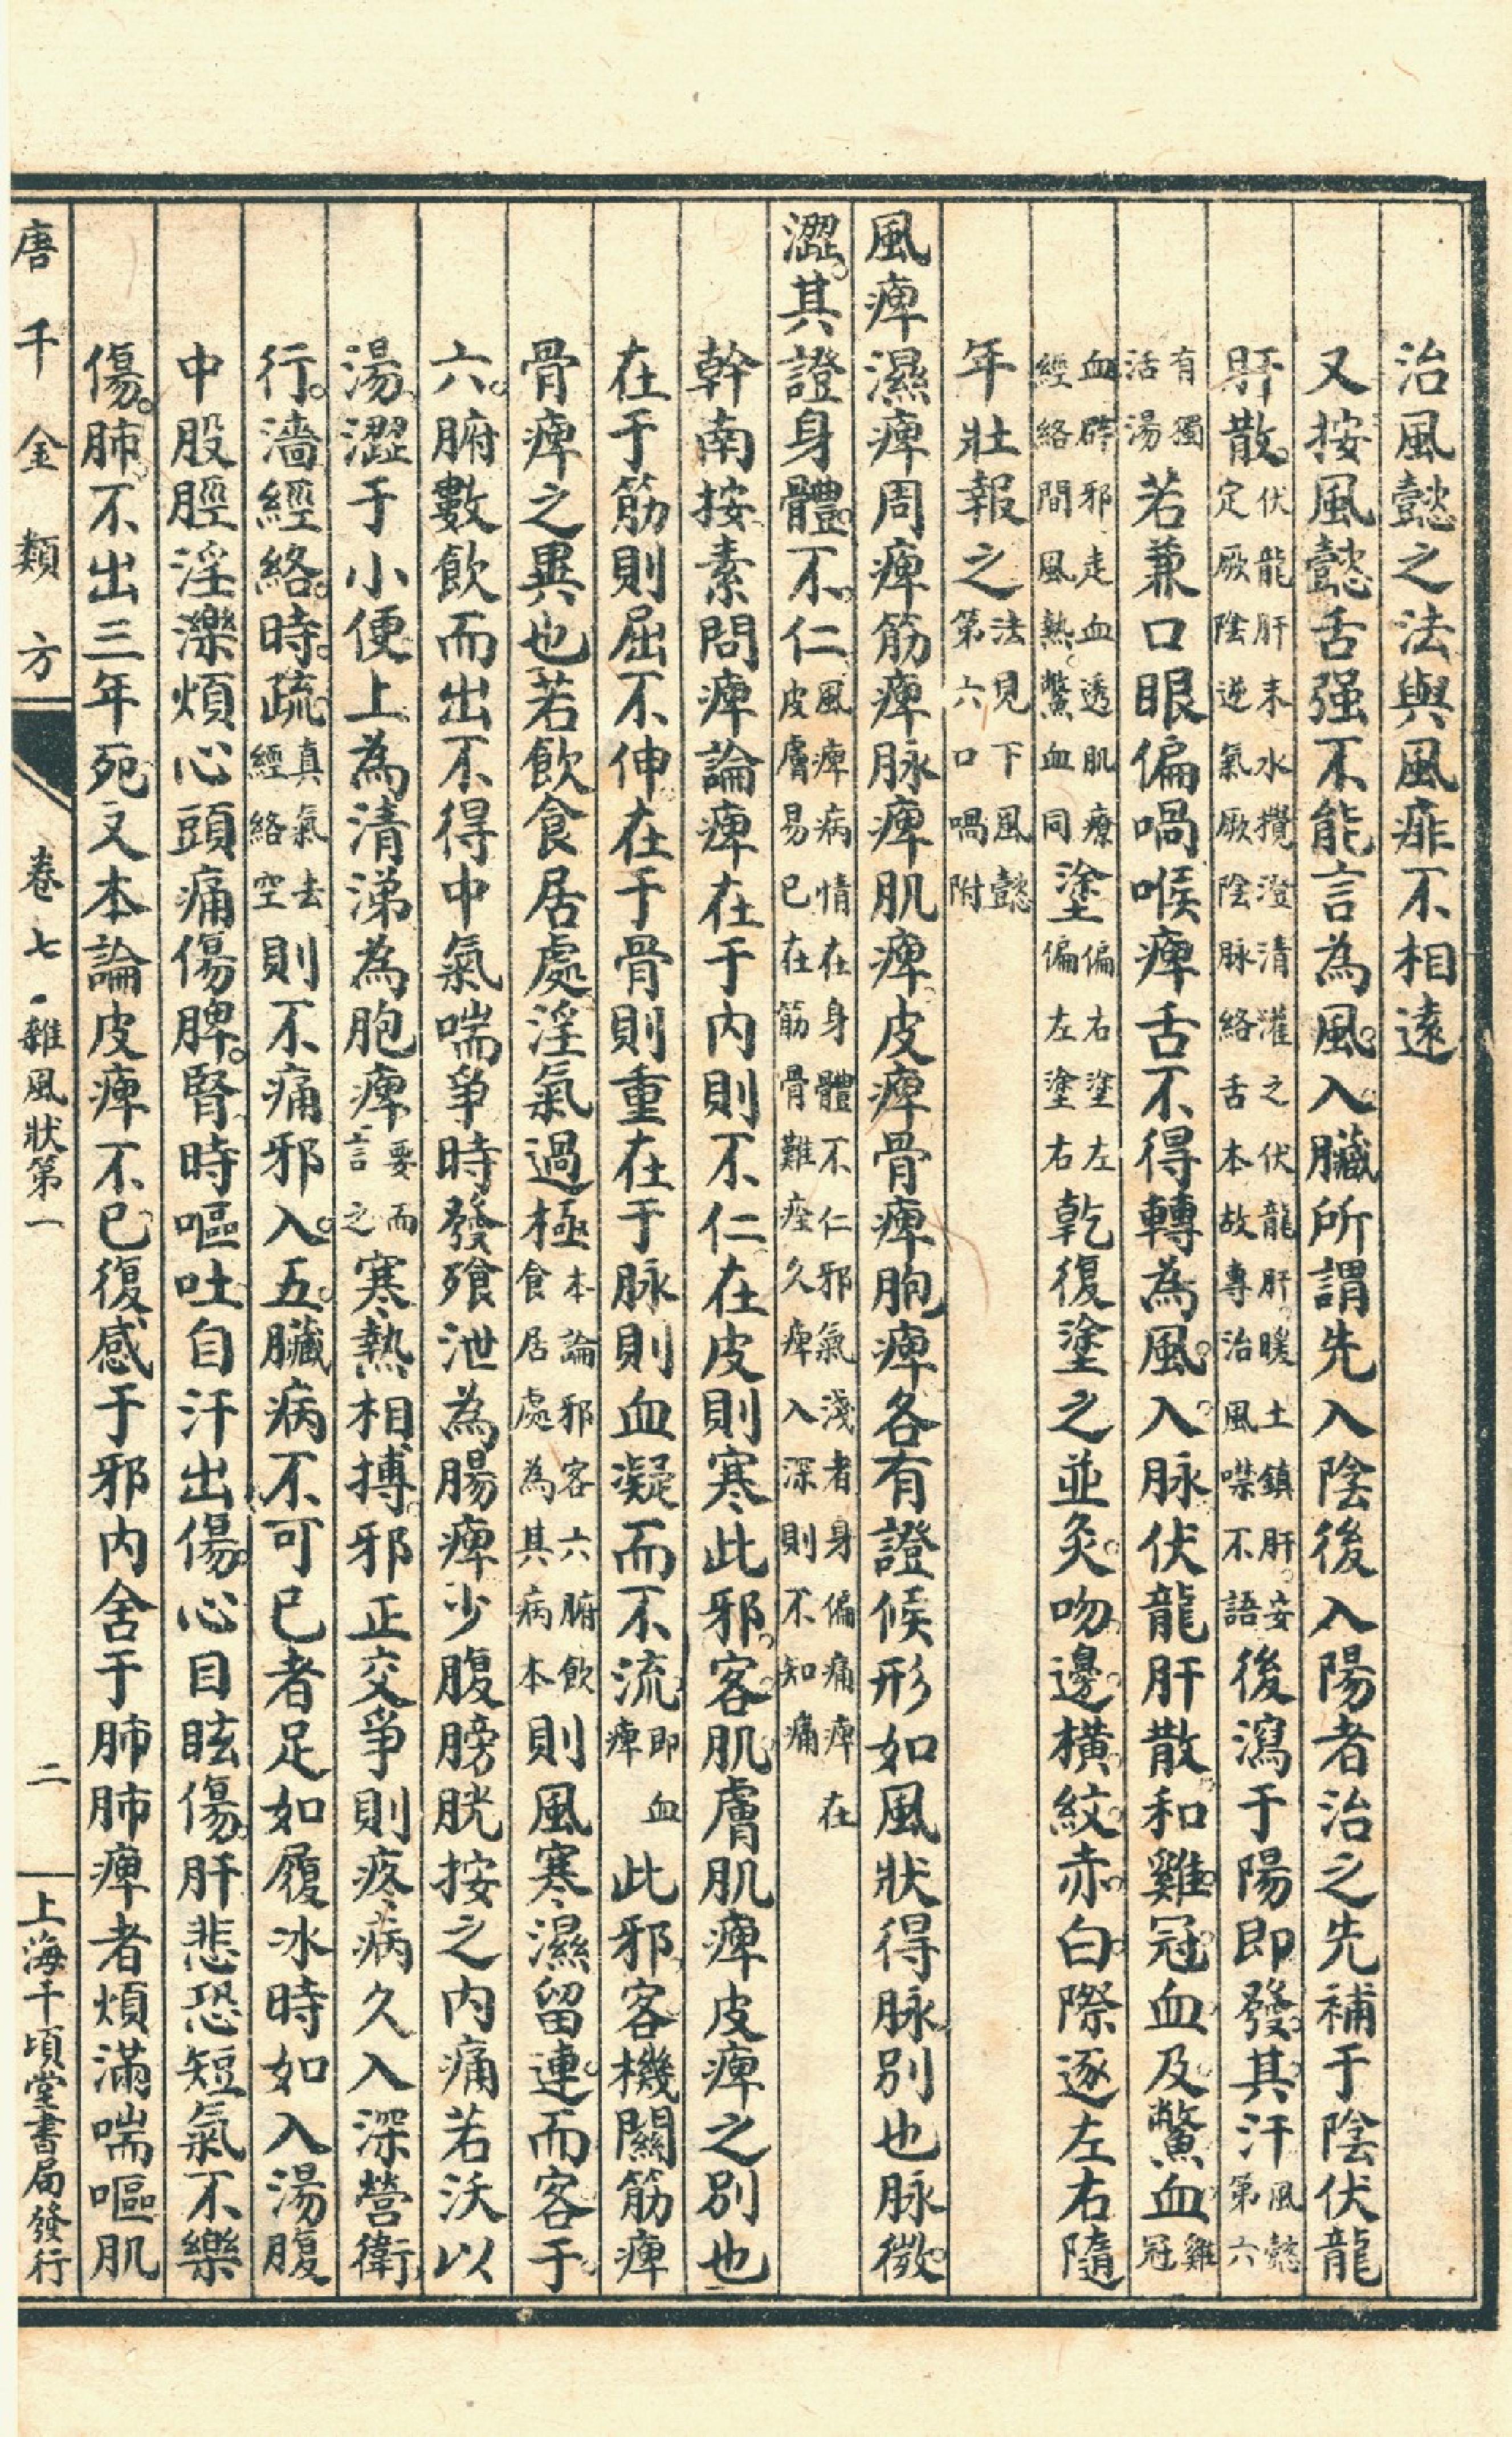 治風懿之法與風痱不相遠
又按風懿舌强不能言為風入臟所謂先入陰後入陽者治之先補于陰伏龍
肝散伏龍肝末水攪澄清灌之伏龍肝暖土鎮肝妄定厥陰逆氣厥陰脉絡舌本故專治風噤不語後瀉于陽即發其汗風懿第六
有獨活湯若兼口眼偏喎喉痺舌不得轉為風入脉伏龍肝散和雞冠血及鱉血雞冠
血辟邪走血透肌療經絡間風熱鱉血同塗偏右塗左偏左塗右乾復塗之並灸吻邊橫紋赤白際逐左右隨
年壯報之法見下風懿第六口喎附
風痺濕痺周痺筋痺脉痺肌痺皮痺骨痺胞痺各有證候形如風狀得脉別也脉微
澀其證身體不仁風痺病情在身體不仁邪氣淺者身偏痛痺在皮膚易已在筋骨難痊久痺入深則不知痛
幹南按素問痺論痺在于内則不仁在皮則寒此邪客肌膚肌痺皮痺之別也
在于筋則屈不伸在于骨則重在于脉則血凝而不流即血痺此邪客機關筋痺
骨痺之異也若飲食居處淫氣過極本論邪客六腑飲食居處為其病本則風寒濕留連而客于
六腑數飲而出不得中氣喘爭時發飱泄為腸痺少腹膀胱按之内痛若沃以
湯澀于小便上為清涕為胞痺要而言之寒熱相搏邪正交爭則疼病久入深營衛
行濇經絡時疏真氣去經絡空則不痛邪入五臟病不可已者足如履冰時如入湯腹
中股脛淫濼煩心頭痛傷脾腎時嘔吐自汗出傷心目眩傷肝悲恐短氣不樂
傷肺不出三年死又本論皮痺不已復感于邪内舍于肺肺痺者煩滿喘嘔肌
唐千金類方 卷七·雜風狀第一 二 上海千頃堂書局發行